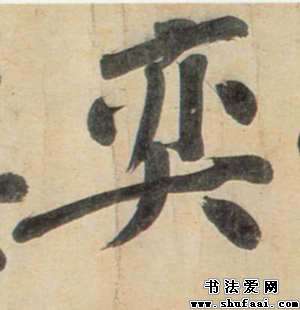 奕
书法爱网
www.shufaai.com